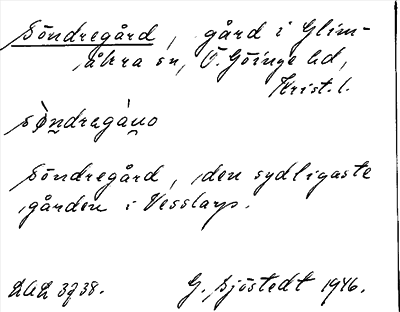 Söndregård, gård i Glim-
åkra sn, Ö. Göinge hd,
Krist. l.
sò̀ndragáno
Söndregård, den sydligaste
gården i Vesslarp.
LAL 3738. G. Sjöstedt 1946.